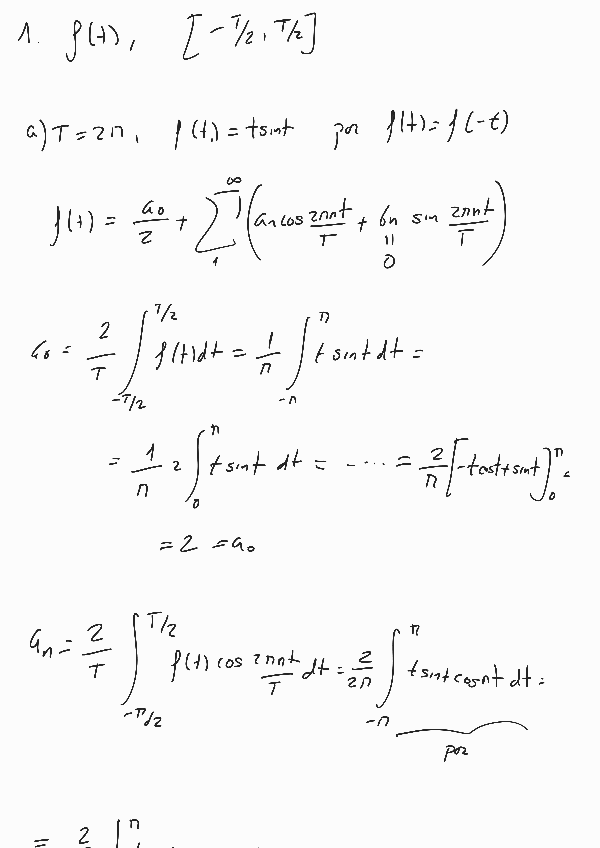 1. f(t), [-T/2, T/2]
a) T = 2π, f(t) = t sint par f(t) = f(-t)
f(t) = a₀/2 + ∑₁^∞ (an cos 2πnt/T + bn sin 2πnt/T)
=
0
a₀ = 2/T ∫_{-T/2}^{T/2} f(t) dt = 1/π ∫_{-π}^{π} t sint dt =
= 1/π 2 ∫₀^π t sint dt = ---- = 2/π [-t cost + sint]₀^π =
= 2 = a₀
an = 2/T ∫_{-T/2}^{T/2} f(t) cos 2πnt/T dt = 2/2π ∫_{-π}^{π} t sint cosnt dt =
par
= 2 ∫^π